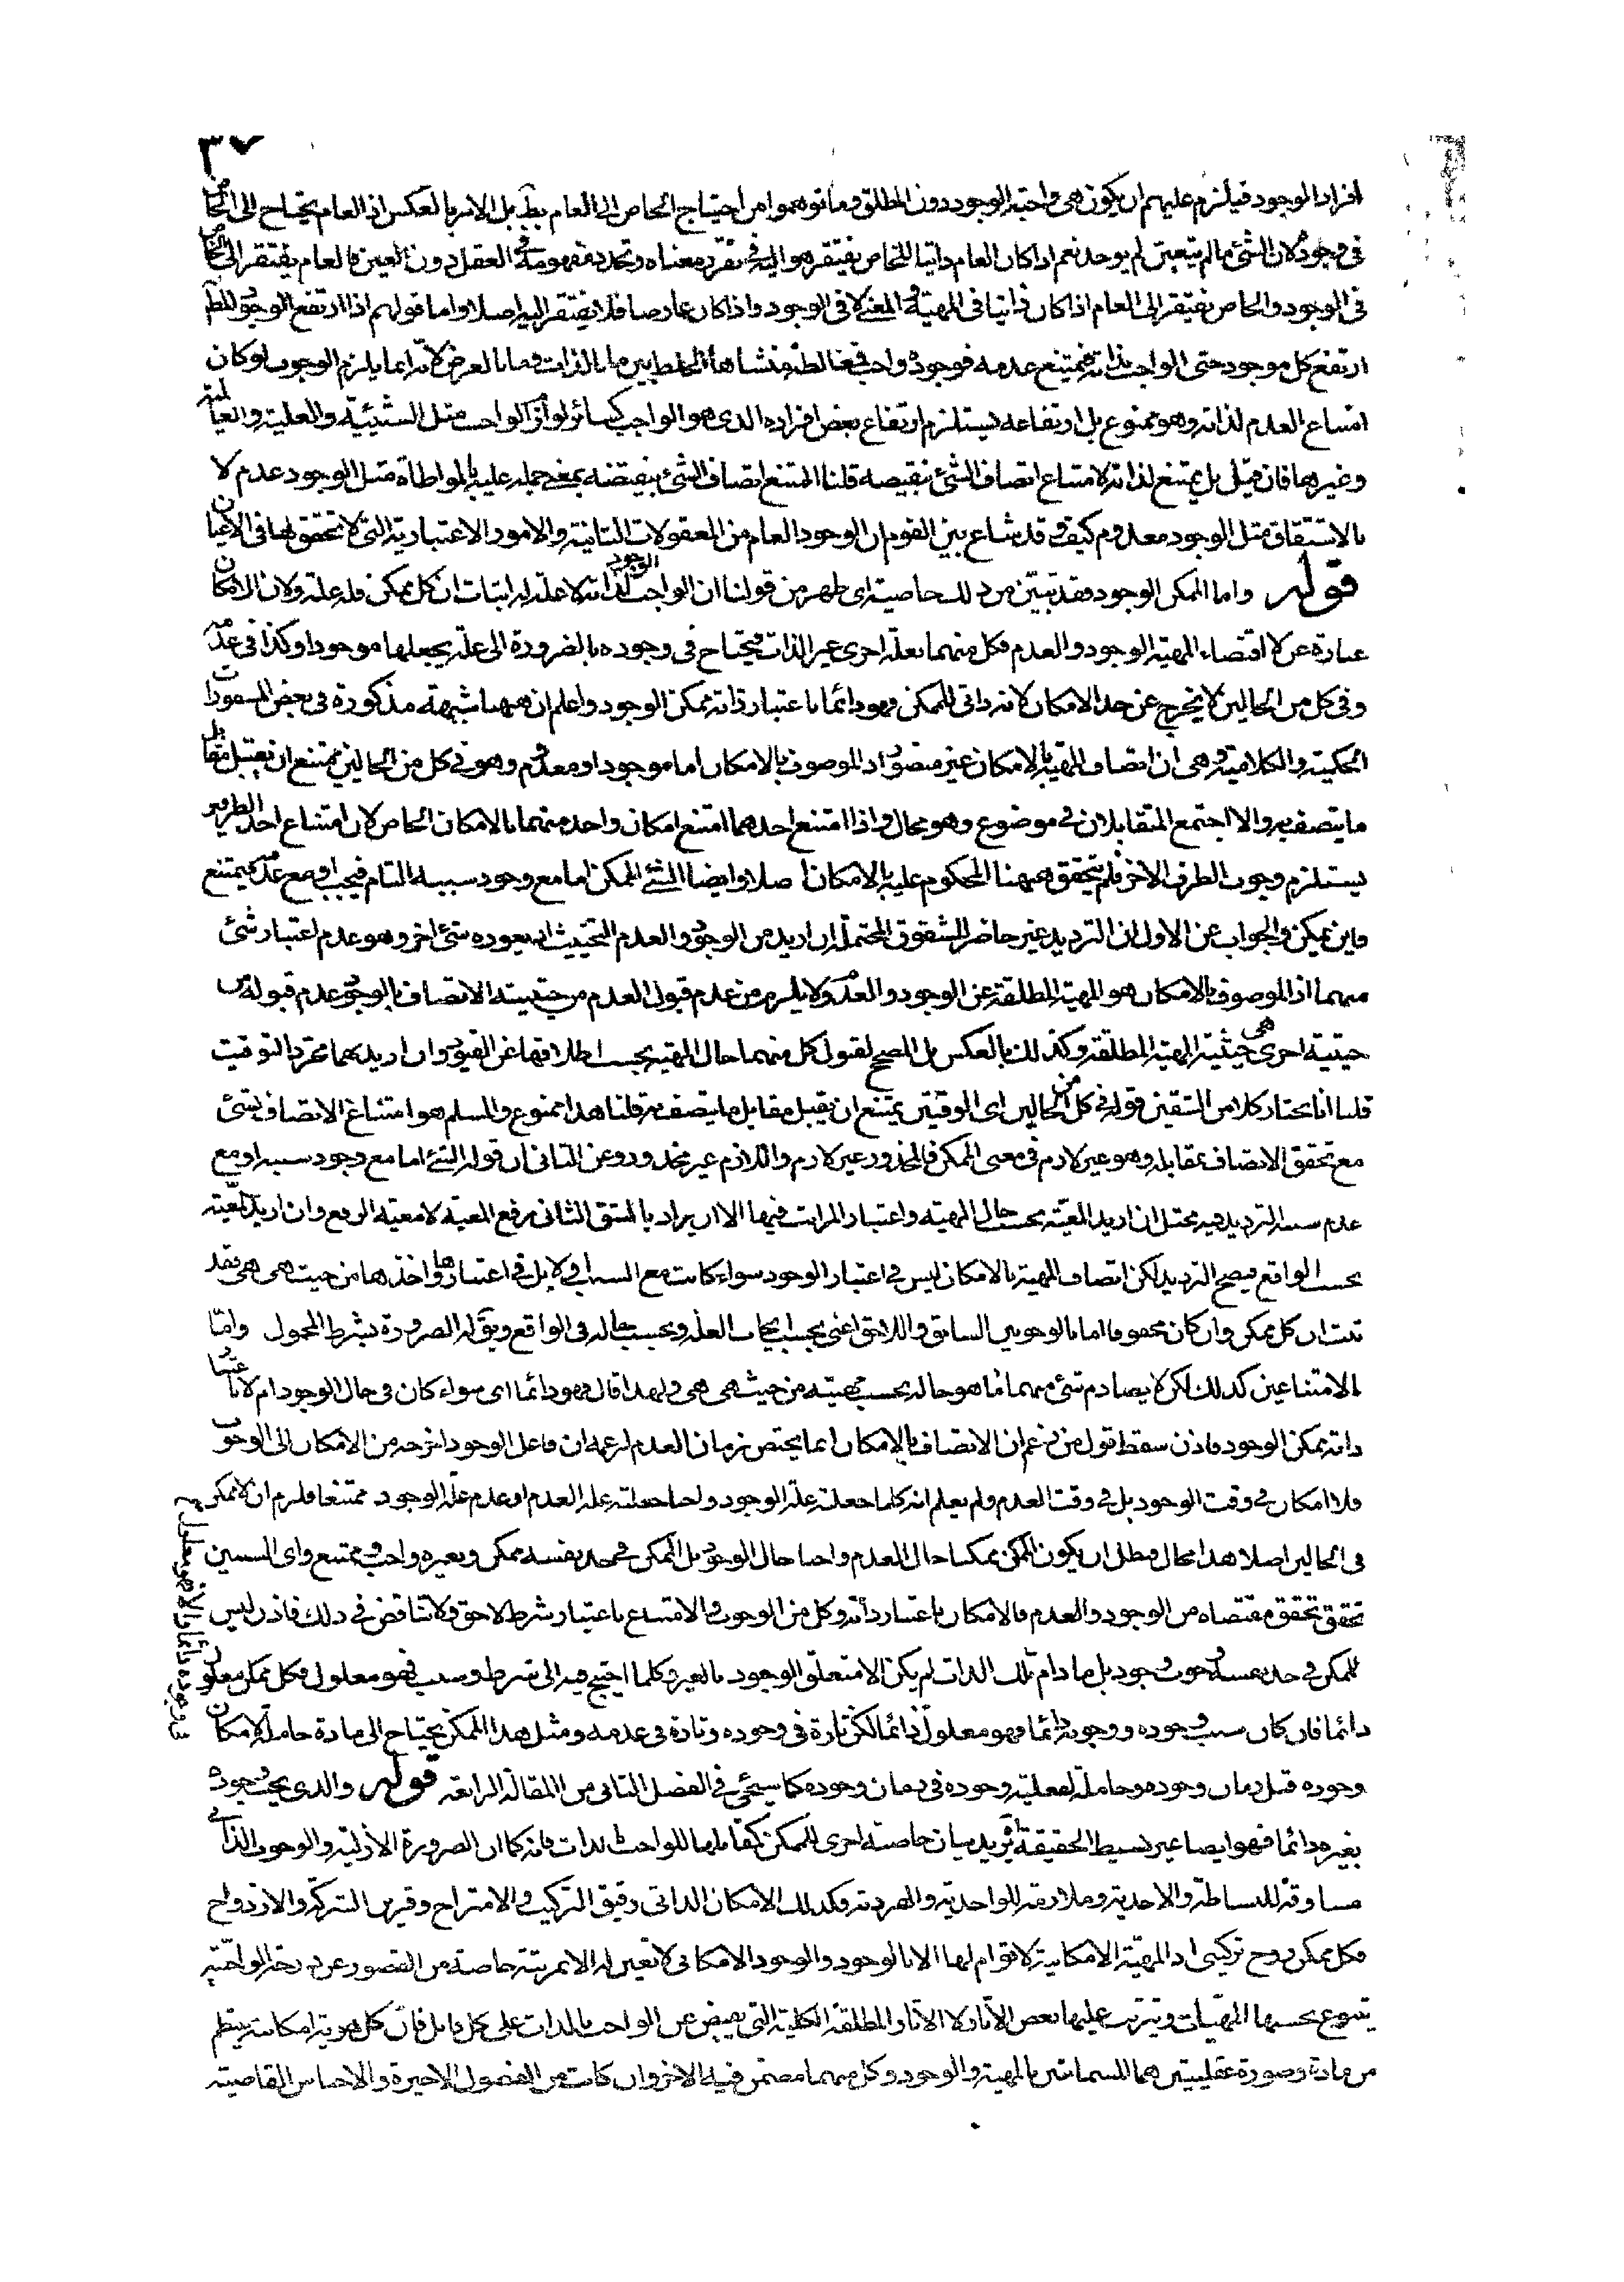 ٣٧
افراد الوجود فيلزم عليهم ان يكون هي واجبة الوجود دون المطلق وما توهموا من احتياج الخاص الى العام بط بل الامر بالعكس اذ العام يحتاج الى الخاص
في وجوده لان الشئ ما لم يتعين لم يوجد نعم اذا كان العام ذاتيا للخاص يفتقر هو اليه في تقرر معناه وتحدد مفهومه في العقل دون العين فالعام يفتقر الى الخاص
في الوجود والخاص يفتقر الى العام اذا كان ذاتيا في المهية والمعنى لا في الوجود واذا كان عارضا فلا يفتقر اليه اصلا واما قولهم اذا ارتفع الوجود المط
ارتفع كل موجود حتى الواجب بذاته فيمتنع عدمه فوجوده واجب فمغالطة منشاها الخلط بين ما بالذات وما بالعرض لانه انما يلزم الوجوب لو كان
امتناع العدم لذاته وهو ممنوع بل ارتفاعه يستلزم ارتفاع بعض افراده الذي هو الواجب كسائر لوازم الواجب مثل الشيئية والعلية والعالمية
وغيرها فان قيل بل يمتنع لذاته لامتناع اتصاف الشئ بنقيضه قلنا الممتنع اتصاف الشئ بنقيضه بمعنى حمله عليه بالمواطاة مثل الوجود عدم لا
بالاشتقاق مثل الوجود معدوم كيف وقد شاع بين القوم ان الوجود العام من المعقولات الثانية والامور الاعتبارية التي لا تحقق لها في الاعيان
قوله واما الممكن الوجود فقد تبين من ذلك خاصيته اي ظهر من قولنا ان الواجب الوجود لذاته لا علة له اثبات ان كل ممكن فله علة ولان الامكان
عبارة عن لا اقتضاء المهية الوجود والعدم فكل منهما بعلة اخرى غير الذات فيحتاج في وجوده بالضرورة الى علة يجعلها موجودا وكذا في عدمه
وفي كل من الحالين لا يخرج عن حد الامكان لانه ذاتي للممكن فهو دائما باعتبار ذاته ممكن الوجود واعلم ان ههنا شبهة مذكورة في بعض المسفورات
الحكمية والكلامية وهي ان اتصاف المهية بالامكان غير متصور اذ الموصوف بالامكان اما موجود او معدوم وهو في كل من الحالين يمتنع ان يقبل مقابل
ما يتصف به والا اجتمع المتقابلان في موضوع وهو محال واذا امتنع احدهما امتنع امكان واحد منهما بالامكان الخاص لان امتناع احد الطرفين
يستلزم وجوب الطرف الاخر فلم يتحقق ههنا المحكوم عليه بالامكان اصلا وايضا الشئ الممكن اما مع وجود سببه التام فيجب او مع عدمه فيمتنع
فاين يمكن والجواب عن الاول ان الترديد غير حاضر للشقوق المحتملة ان اريد من الوجود والعدم التحييث اذ يعوزه شئ اخر وهو عدم اعتبار شئ
منهما اذ الموصوف بالامكان هو المهية المطلقة عن الوجود والعدم ولا يلزم من عدم قبول العدم من حيثية الاتصاف بالوجود عدم قبوله من
حيثية اخرى هي حيثية المهية المطلقة وكذلك بالعكس بل المصحح لقبول كل منهما حال المهية بحسب اطلاقها عن القيود وان اريد بهما مجرد التوقيت
قلنا انا نختار كلا من الشقين قوله في كل من الحالين اي الوقتين يمتنع ان يقبل مقابل ما يتصف به قلنا هذا ممنوع والمسلم هو امتناع الاتصاف بشئ
مع تحقق الاتصاف بمقابله وهو غير لازم في معنى الممكن فالمحذور غير لازم واللازم غير محذور وعن الثاني ان قوله الشئ اما مع وجود سببه او مع
عدم سببه الترديد فيه مختل ان اريد المعية بحسب حال المهية واعتبار المراتب فيها الا ان يراد بالشق الثاني رفع المعية لا معية الرفع وان اريد المعية
بحسب الواقع فيصح الترديد لكن اتصاف المهية بالامكان ليس في اعتبار الوجود سواء كانت مع السبب او لا بل في اعتبارها واخذها من حيث هي هي فقد
ثبت ان كل ممكن وان كان محفوفا اما بالوجوبين السابق واللاحق اعني بحسب ايجاب العلة وبحسب حاله في الواقع ويق له الضرورة بشرط المحمول واما
بالامتناعين كذلك لكن لا يصادم شئ منهما ما هو حاله بحسب مهيته من حيث هي هي ولهذا قال فهو دائما اى سواء كان في حال الوجود ام لا باعتبار
ذاته ممكن الوجود فاذن سقط قول من زعم ان الاتصاف بالامكان انما يختص بزمان العدم لزعمه ان فاعل الوجود اخرجه من الامكان الى الوجوب
فلا امكان في وقت الوجود بل في وقت العدم ولم يعلم انه كلما جعلته علة الوجود واجبا جعلته علة العدم او عدم علة الوجود ممتنعا فلزم ان لا ممكن
في الحالين اصلا هذا محال فبطل ان يكون الممكن ممكنا حال العدم واجبا حال الوجود بل الممكن في حد نفسه ممكن وبغيره واجب وممتنع واى السببين
تحقق تحقق مقتضاه من الوجود والعدم فالامكان باعتبار ذاته وكل من الوجوب والامتناع باعتبار شرط لاحق فلا تناقض في ذلك فاذن ليس
للممكن في حد نفسه وجوب وجود بل ما دام تلك الذات لم يكن الا متعلق الوجود بالغير وكلما احتيج فيه الى شرط وسبب فهو معلول فكل ممكن معلول
دائما فان كان سبب وجوده ووجوبه دائما فهو معلول دائما لكن تارة في وجوده وتارة في عدمه ومثل هذا الممكن يحتاج الى مادة حاملة لامكان
وجوده قبل زمان وجوده وحاملة لفعلية وجوده في زمان وجوده كما سيجئ في الفصل الثاني من المقالة الرابعة قوله والذي يجب وجوده
بغيره دائما فهو ايضا غير بسيط الحقيقة آه يريد بيان خاصة اخرى للممكن كمقابلها للواجب بالذات فانه كما ان الضرورة الازلية والوجوب الذاتي
مساوقة للبساطة والاحدية وملازمة للواحدية والفردية فكذلك الامكان الذاتي رفيق التركيب والامتزاج وقرين الشركة والازدواج
فكل ممكن زوج تركيبي اذ المهية الامكانية لا قوام لها الا بالوجود والوجود الامكاني لا تعين له الا بمرتبة خاصة من القصور عن درجة الواجبية
يتنوع بحسبها المهيات ويترتب عليها بعض الآثار لا الآثار المطلقة الكلية التي يفيض عن الواجب بالذات على كل قابل فان كل هوية امكانية ينتظم
من مادة وصورة عقليتين هما المسماتين بالمهية والوجود وكل منهما مضمن فيه الاخر وان كانت من الفصول الاخيرة والاجناس القاصية